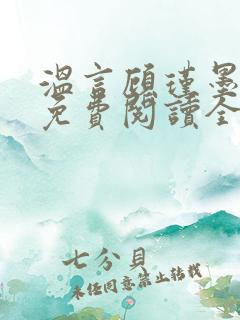 溫言顧瑾墨
免費閱讀全
七分貝
未經同意禁止轉載